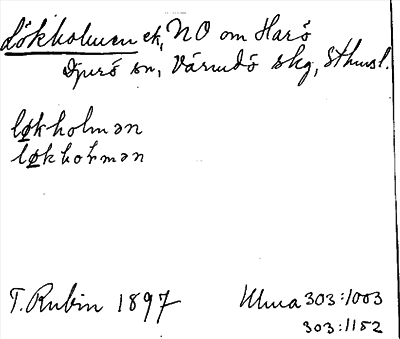 Lökholmen ek, NO om Harö
Djurö sn, Värmdö skg, Sthmsl.
løkholmən
løkhołmən
T. Rubin 1897
Ulma 303:1003
303:1152